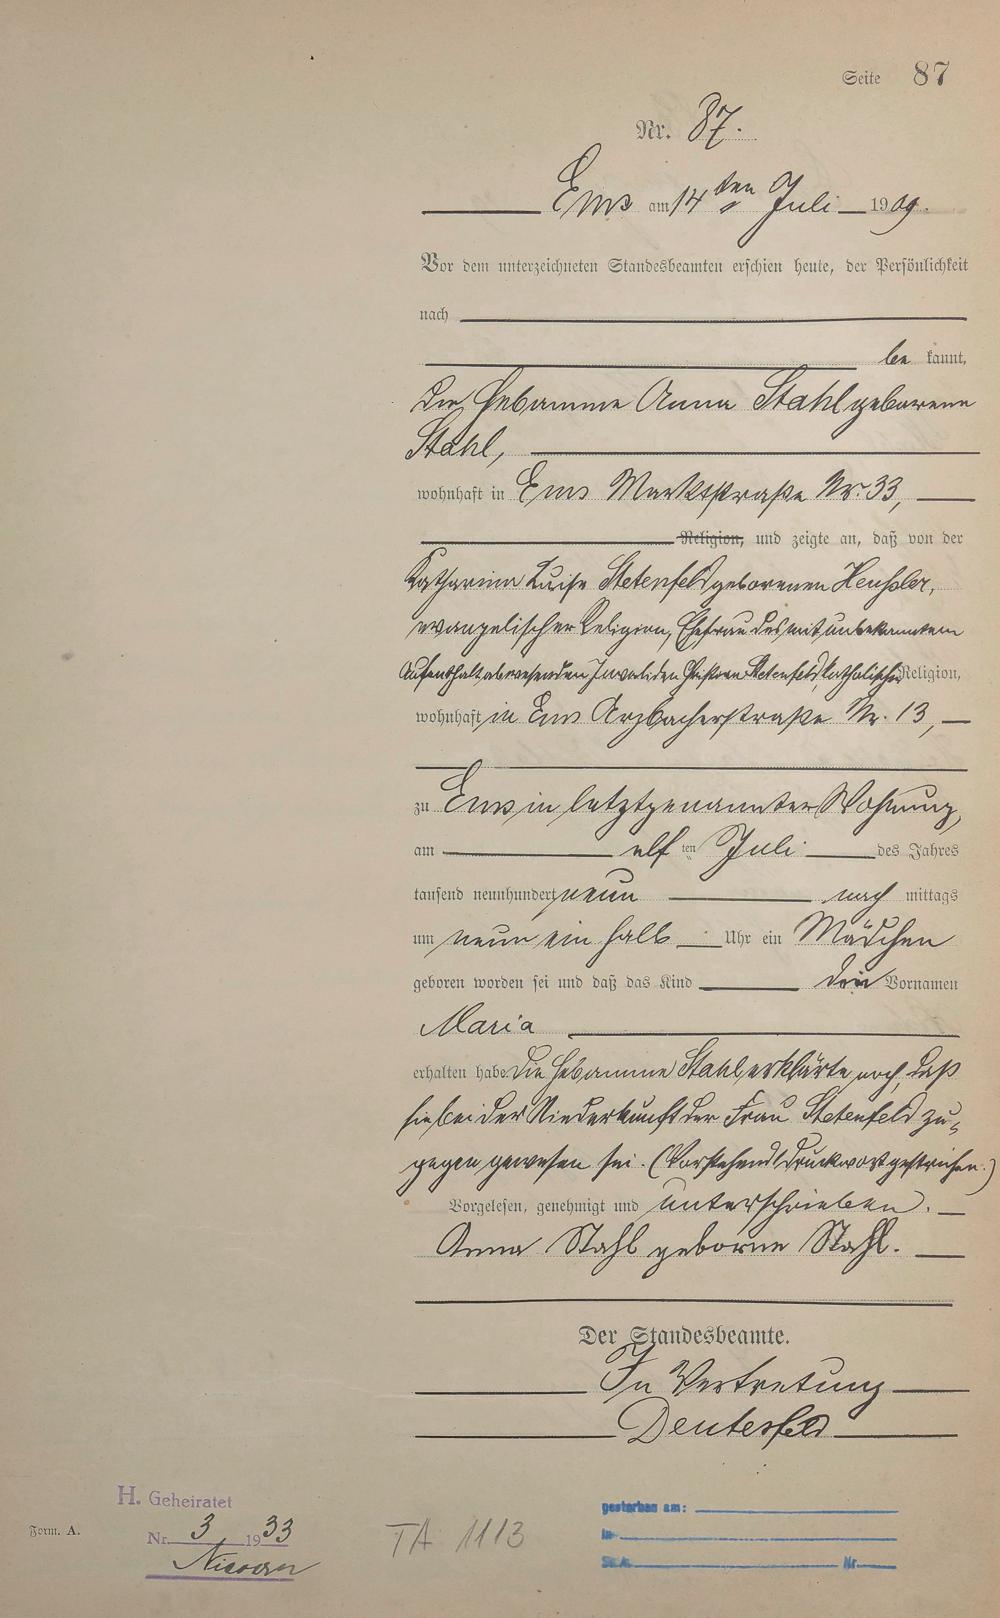 Seite 87
Nr. 87.
Ems am 14ten Juli 1909.
Vor dem unterzeichneten Standesbeamten erschien heute, der Persönlichkeit
nach
be kannt,
die Hebamme Anna Stahl geborene
Stahl,
wohnhaft in Ems Marktstraße Nr. 33,
Religion, und zeigte an, daß von der
Katharina Luise Stetenfeld geborenen Heußler,
evangelischer Religion, Ehefrau des mit unbekanntem
Aufenthalt abwesenden Invaliden Stetenfeld, katholischer Religion,
wohnhaft in Ems Arzbacherstraße Nr. 13,
zu Ems in letztgenannter Wohnung,
am elf ten Juli des Jahres
tausend neunhundert neun nach mittags
um neun ein halb Uhr ein Mädchen
geboren worden sei und daß das Kind den Vornamen
Maria
erhalten habe. Die Hebamme Stahl erklärte noch, daß
sie bei der Niederkunft der Frau Stetenfeld zu-
gegen gewesen sei. (Vorstehend 1 Druckwort gestrichen.)
Vorgelesen, genehmigt und unterschrieben.
Anna Stahl geborne Stahl.
Der Standesbeamte.
In Vertretung
Deutesfeld
H. Geheiratet
Nr. 3 1933
Nievern
Form. A.
TA 1113
gestorben am:
in
St.A. Nr.